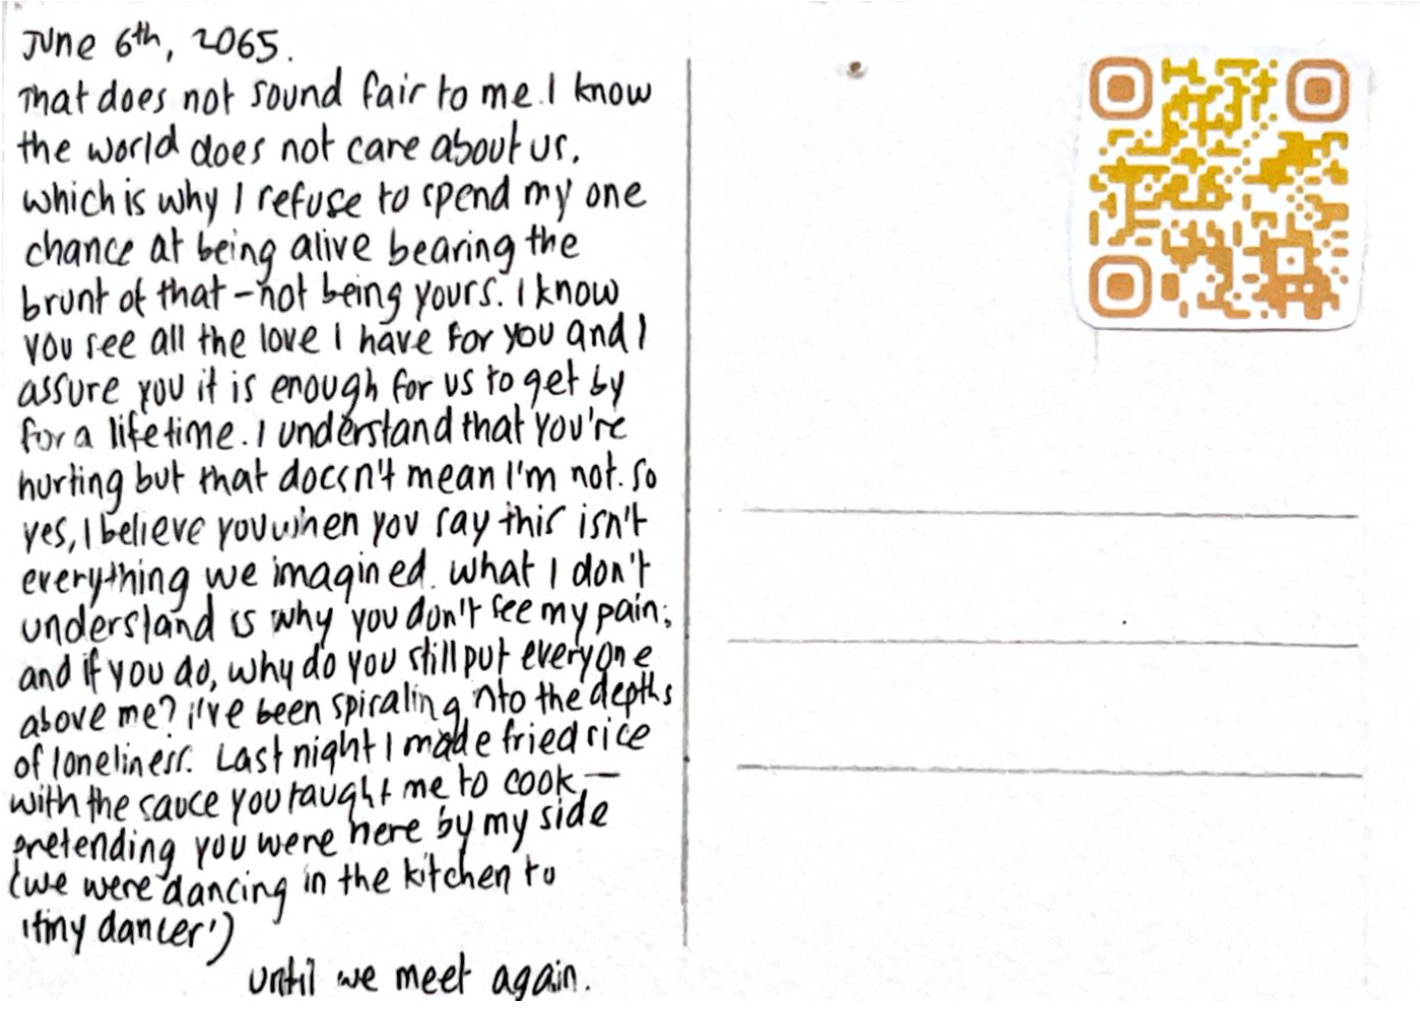 June 6th, 2065.
That does not sound fair to me. I know
the world does not care about us.
which is why I refuse to spend my one
chance at being alive bearing the
brunt of that - not being yours. I know
you see all the love I have for you and I
assure you it is enough for us to get by
for a lifetime. I understand that you're
hurting but that doesn't mean I'm not. so
yes, I believe you when you say this isn't
everything we imagined. what I don't
understand is why you don't see my pain;
and if you do, why do you still put everyone
above me? i've been spiraling nto the depths
of loneliness. Last night I made fried rice
with the sauce you taught me to cook, —
pretending you were here by my side
(we were dancing in the kitchen to
'tiny dancer')
until we meet again.